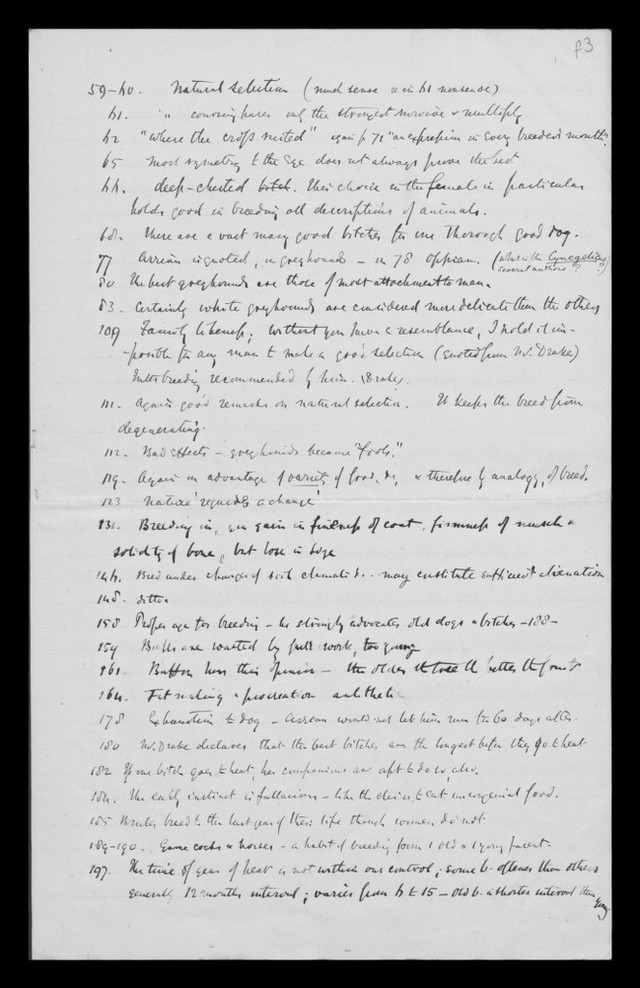 p3
59-60. Natural selection (much sense & in 61 nonsense)
61. " coursing hares only the strongest survive & multiply
62 "where the cross suited" again p 71 "an expression in every breeder's mouth".
65 most symmetry to the Eye does not always prove the best
66. deep-chested bitch. This choice in the female in particular
holds good in breeding all descriptions of animals.
68. There are a vast many good bitches for one thorough good dog.
77 Arrian is quoted, on greyhounds - in 78 Oppian. (what is the Cynegetica
several authors)
80 The best greyhounds are those of most attachment to man.
83. Certainly white greyhounds are considered more delicate than the others
109 Family likeness; without you have a resemblance, I hold it im-
-possible for any man to make a good selection (quoted from Mr. Drake)
Interbreeding recommended by him. (Drake).
111. Again good remarks on natural selection. It keeps the breed from
degenerating.
112. Bad effects - greyhounds became "fools."
119. Again on advantage of variety of food, & therefore by analogy, of breed.
123 Nature 'requires a change'
131. Breeding in, you gain in fineness of coat, firmness of muscle &
solidity of bone, but lose in size
146. Bred under change of soil climate &c. may constitute sufficient alienation
148. ditto
158 Proper age for breeding - he strongly advocates old dogs & bitches - 188 -
159 Bulls are wasted by full work, too young
161. Buffon has this opinion - the older the tree the better the fruit
164. Fat making & procreation antithetic
178 Exhaustion to dog - Arrian would not let him run for 60 days after.
180 Mr. Drake declares that the best bitches are the longest before they go to heat
182 If one bitch goes to heat, her companions are apt to do so, also.
184. The early instinct is fallacious - like the desire to eat uncongenial food.
185 Brutes breed to the last year of their life though women do not.
189-190. Game cocks & horses - a habit of breeding from 1 old & 1 young parent.
197. The time of year of heat is not within our control; some b. oftener than others
generally 12 months interval; varies from 6 to 15 - old b. a shorter interval than young